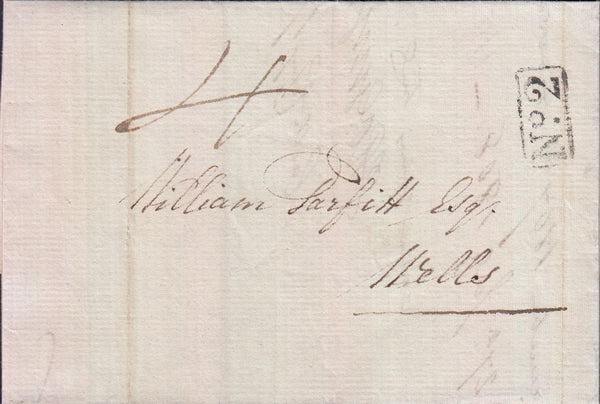 4
No. 2
William Parfitt Esq.
Wells